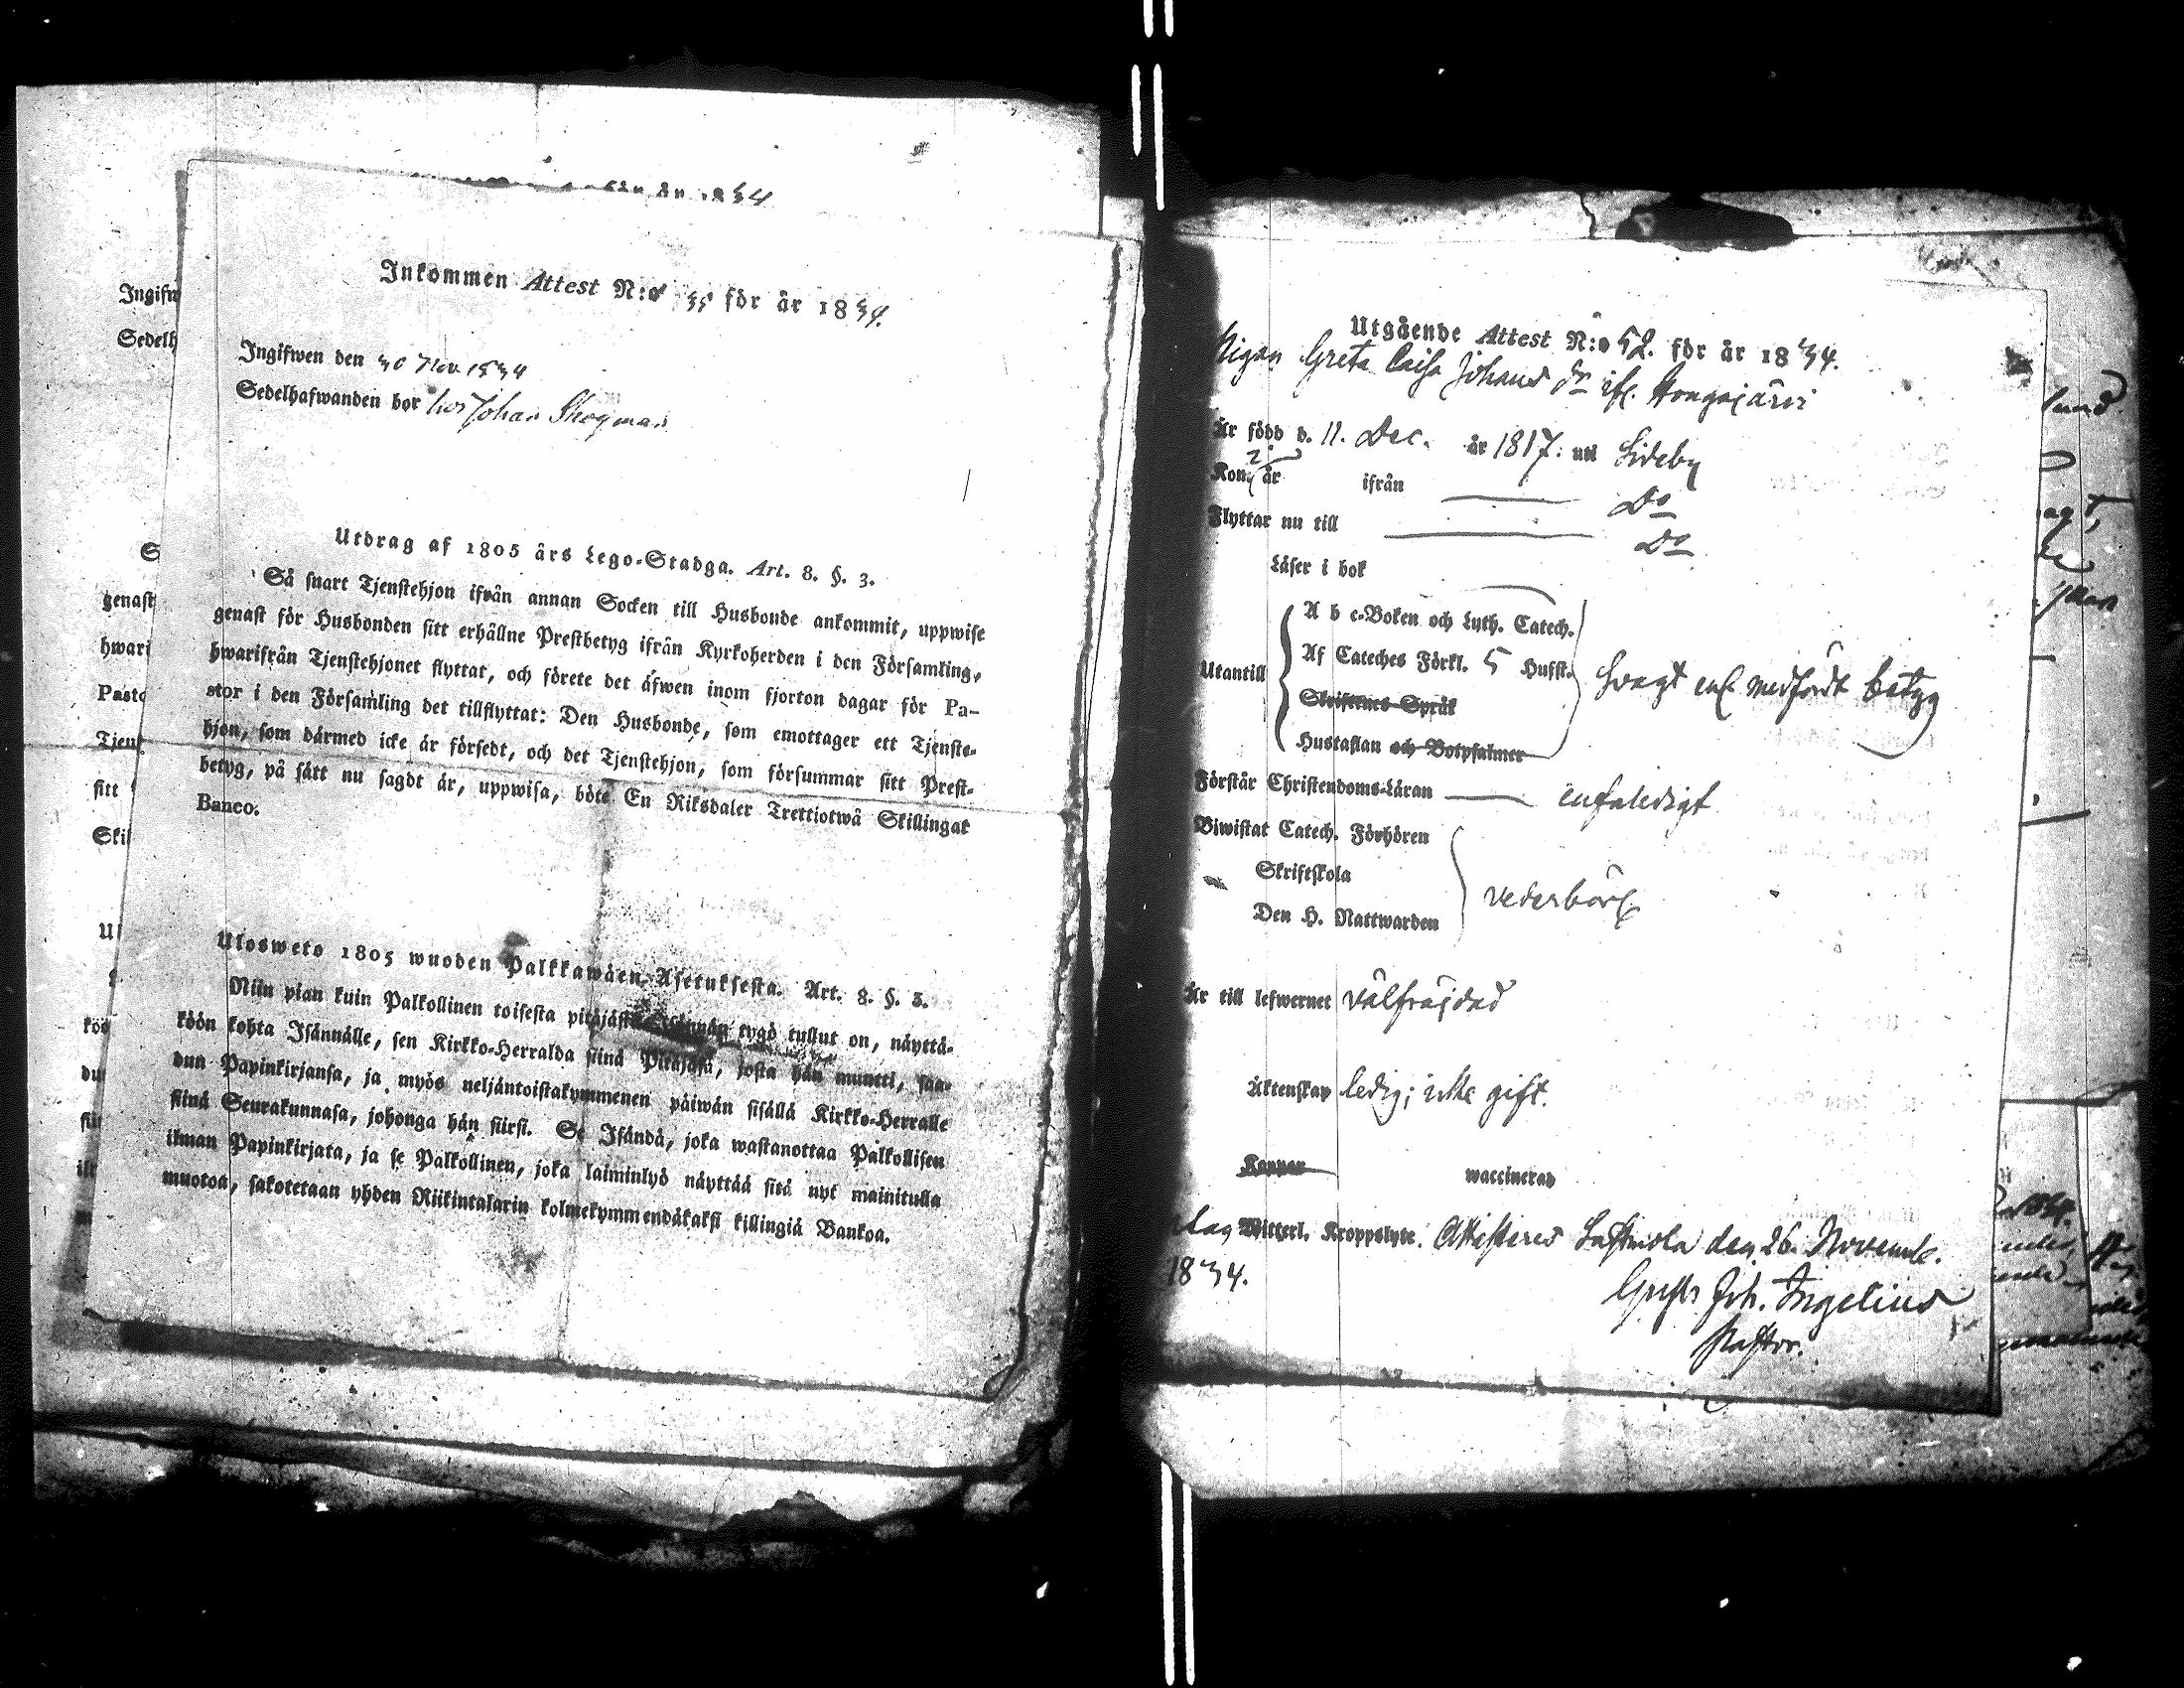 för år 1834
Inkommen Attest N:o 35 för år 1834.
Ingifwen den 30 Nov 1834
Sedelhafwanden bor hos Johan Skogman
Utdrag af 1805 års Lego-Stadga. Art. 8. §. 3.
Så snart Tjenstehjon ifrån annan Socken till Husbonde ankommit, uppwise
genast för Husbonden sitt erhållne Prestbetyg ifrån Kyrkoherden i den Församling,
hwarifrån Tjenstehjonet flyttat, och förete det äfwen inom fjorton dagar för Pa-
stor i den Församling det tillflyttat: Den Husbonde, som emottager ett Tjenste-
hjon, som dårmed icke är försedt, och det Tjenstehjon, som försummar sitt Prest-
betyg, på sätt nu sagdt är, uppwisa, böte En Riksdaler Trettiotwå Skillingar
Banco.
Ulosweto 1805 wuoden Palkkawäen Asetuksesta. Art. 8. §. 3.
Niin pian kuin Palkollinen toisesta pitäjästä Isännän tygö tullut on, näyttä-
köön kohta Isännälle, sen Kirkko-Herralda siinä Pitäjäsä, josta hän muutti, saa-
dun Papinkirjansa, ja myös neljäntoistakymmenen päiwän sisällä Kirkko-Herralle
siinä Seurakunnasa, johonga hän siirsi. Se Isändä, joka wastanottaa Palkollisen
ilman Papinkirjata, ja se Palkollinen, joka laiminlyö näyttää sitä nyt mainitulla
muotoa, sakotetaan yhden Riikintalarin kolmekymmendäkaksi killingiä Bankoa.
Utgående Attest N:o 52. för år 1834.
Pigan Greta Caisa Johans dr ifr. Hongajärvi
Är född d. 11. Dec. år 1817: uti Sideby
Kom år ifrån Do
Flyttar nu till Do
Läser i bok
A b c-Boken och Luth. Catech.
Utantill Af Cateches Förkl. 5 Husst. svagt enl. medfördt betyg
Skriftenes Språk
Hustaflan och Botpsalmer
Förstår Christendoms-Läran enfaldigt
Biwistat Catech. Förhören
Skriftskola vederbörl.
Den H. Nattwarden
Är till lefwernet välfräjdad
Äktenskap ledig; icke gift.
Koppor waccinerad
utan Witterl. Kroppslyte. Attesteres Lastmola den 26. Novemb.
1834.
Gust. Joh. Ingelius
Pastor.